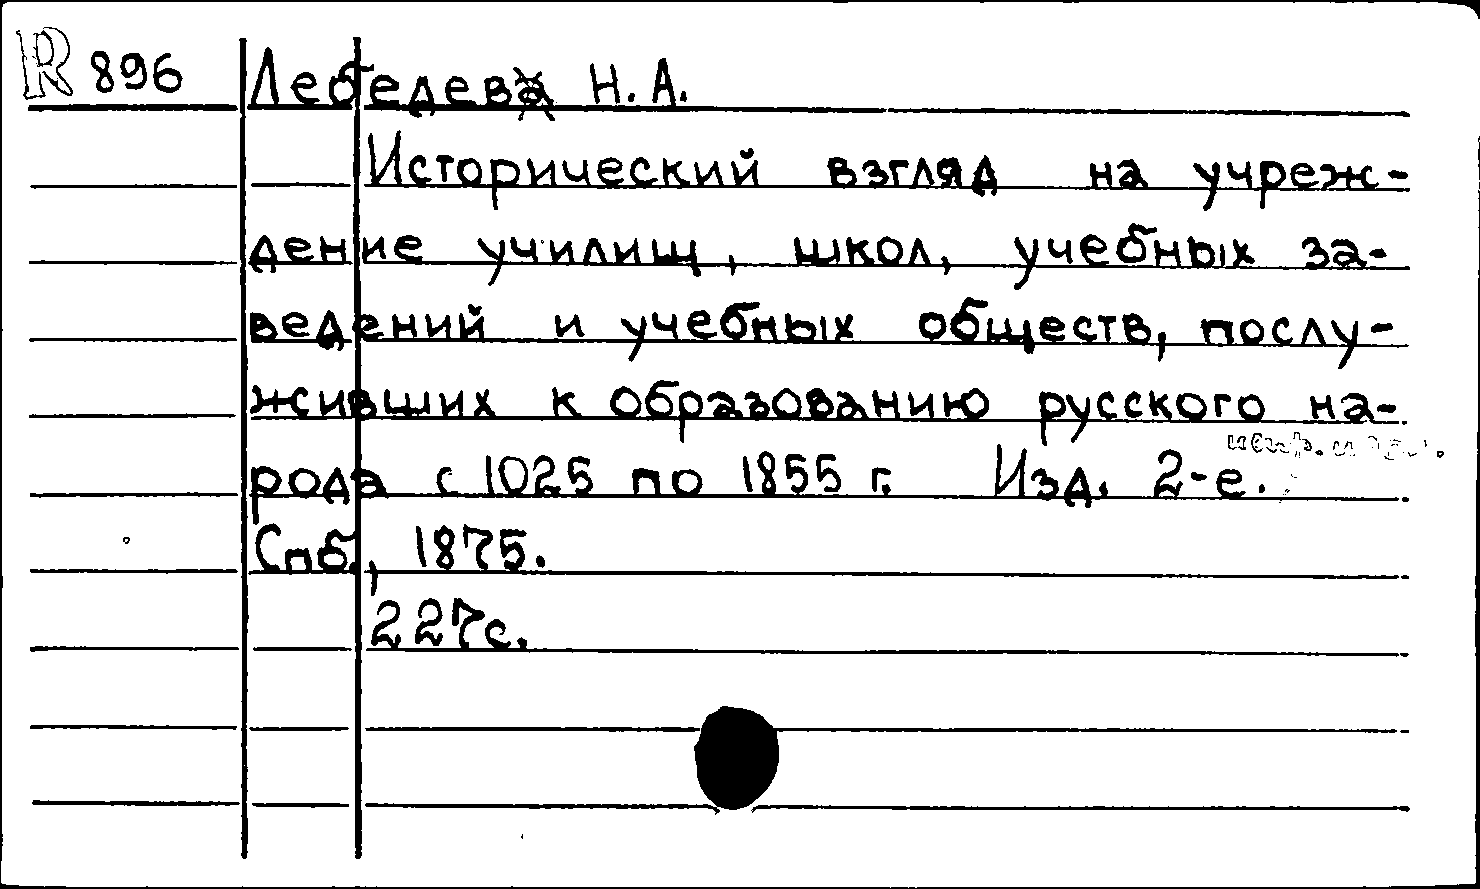 R 896 Лебедев Н. А.
Исторический взгляд на учреж-
дение училищ, школ, учебных за-
ведений и учебных обществ, послу-
живших к образованию русского на-
рода с 1025 по 1855 г. Изд. 2-е.
Спб., 1875.
227с.